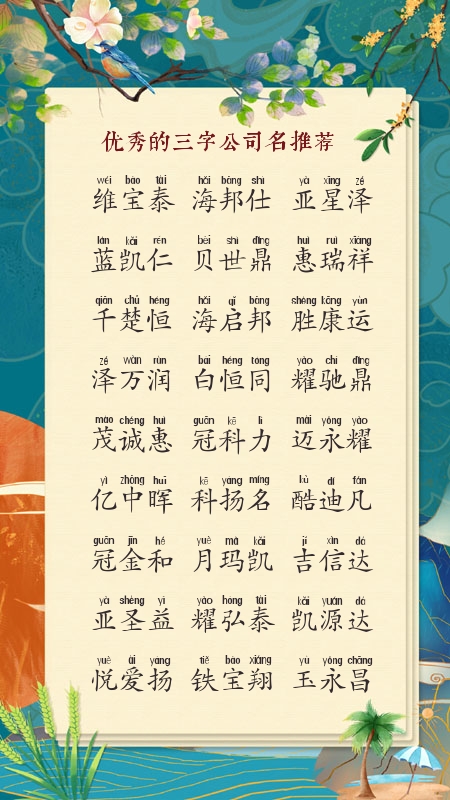 优秀的三字公司名推荐
wéi bǎo tài hǎi bāng shì yà xīng zé
维宝泰 海邦仕 亚星泽
lán kǎi rén bèi shì dǐng huì ruì xiáng
蓝凯仁 贝世鼎 惠瑞祥
qiān chǔ héng hǎi qǐ bāng shèng kāng yùn
千楚恒 海启邦 胜康运
zé wàn rùn bai héng tóng yào chí dǐng
泽万润 白恒同 耀驰鼎
mào chéng huì guān kē lì mài yǒng yào
茂诚惠 冠科力 迈永耀
yì zhōng huī kē yáng míng kù dí fán
亿中晖 科扬名 酷迪凡
guān jīn hé yuè mǎ kǎi jí xìn dá
冠金和 月玛凯 吉信达
yà shèng yì yào hóng tài kǎi yuán dá
亚圣益 耀弘泰 凯源达
yuè ài yáng tiě bǎo xiáng yù yǒng chāng
悦爱扬 铁宝翔 玉永昌